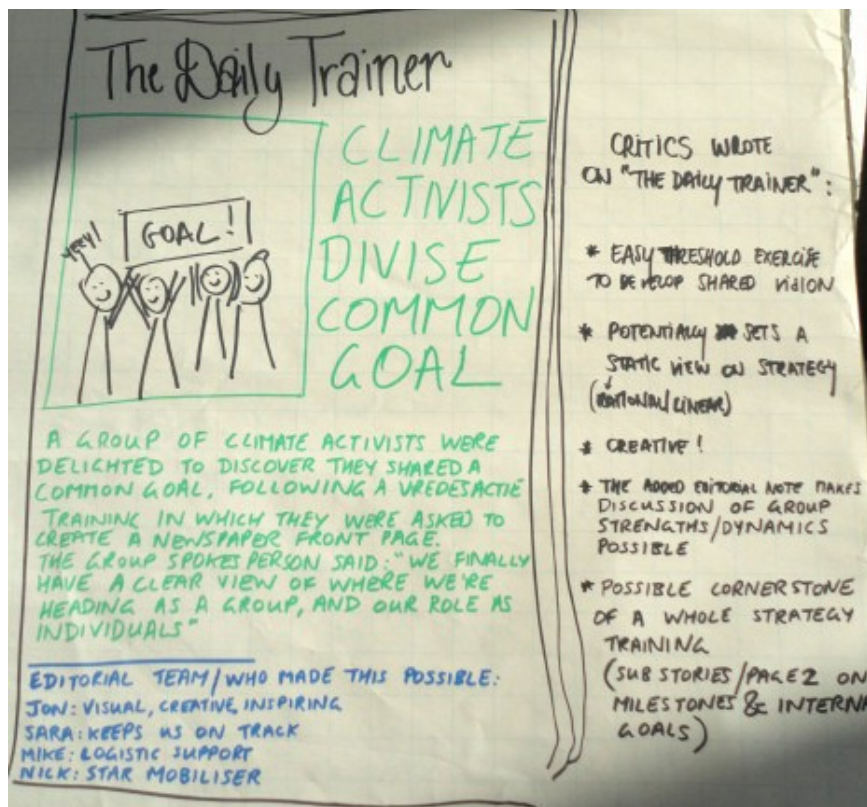 The Daily Trainer
yeey!
GOAL!
CLIMATE
ACTIVISTS
DIVISE
COMMON
GOAL
A GROUP OF CLIMATE ACTIVISTS WERE
DELIGHTED TO DISCOVER THEY SHARED A
COMMON GOAL, FOLLOWING A VREDESACTIE
TRAINING IN WHICH THEY WERE ASKED TO
CREATE A NEWSPAPER FRONT PAGE.
THE GROUP SPOKES PERSON SAID: "WE FINALLY
HAVE A CLEAR VIEW OF WHERE WE'RE
HEADING AS A GROUP, AND OUR ROLE AS
INDIVIDUALS"
EDITORIAL TEAM/WHO MADE THIS POSSIBLE:
JON: VISUAL, CREATIVE, INSPIRING
SARA: KEEPS US ON TRACK
MIKE: LOGISTIC SUPPORT
NICK: STAR MOBILISER
CRITICS WROTE
ON "THE DAILY TRAINER":
* EASY THRESHOLD EXERCISE
TO DEVELOP SHARED VISION
* POTENTIALLY SETS A
STATIC VIEW ON STRATEGY
(RATIONAL/LINEAR)
* CREATIVE!
* THE ADDED EDITORIAL NOTE MAKES
DISCUSSION OF GROUP
STRENGTHS/DYNAMICS
POSSIBLE
* POSSIBLE CORNERSTONE
OF A WHOLE STRATEGY
TRAINING
(SUB STORIES/PAGE 2 ON
MILESTONES & INTERNA
GOALS)